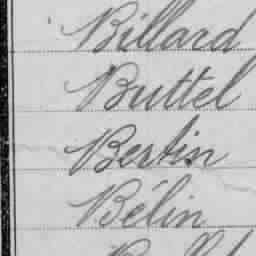 Billard
Buttel
Bertin
Bélin